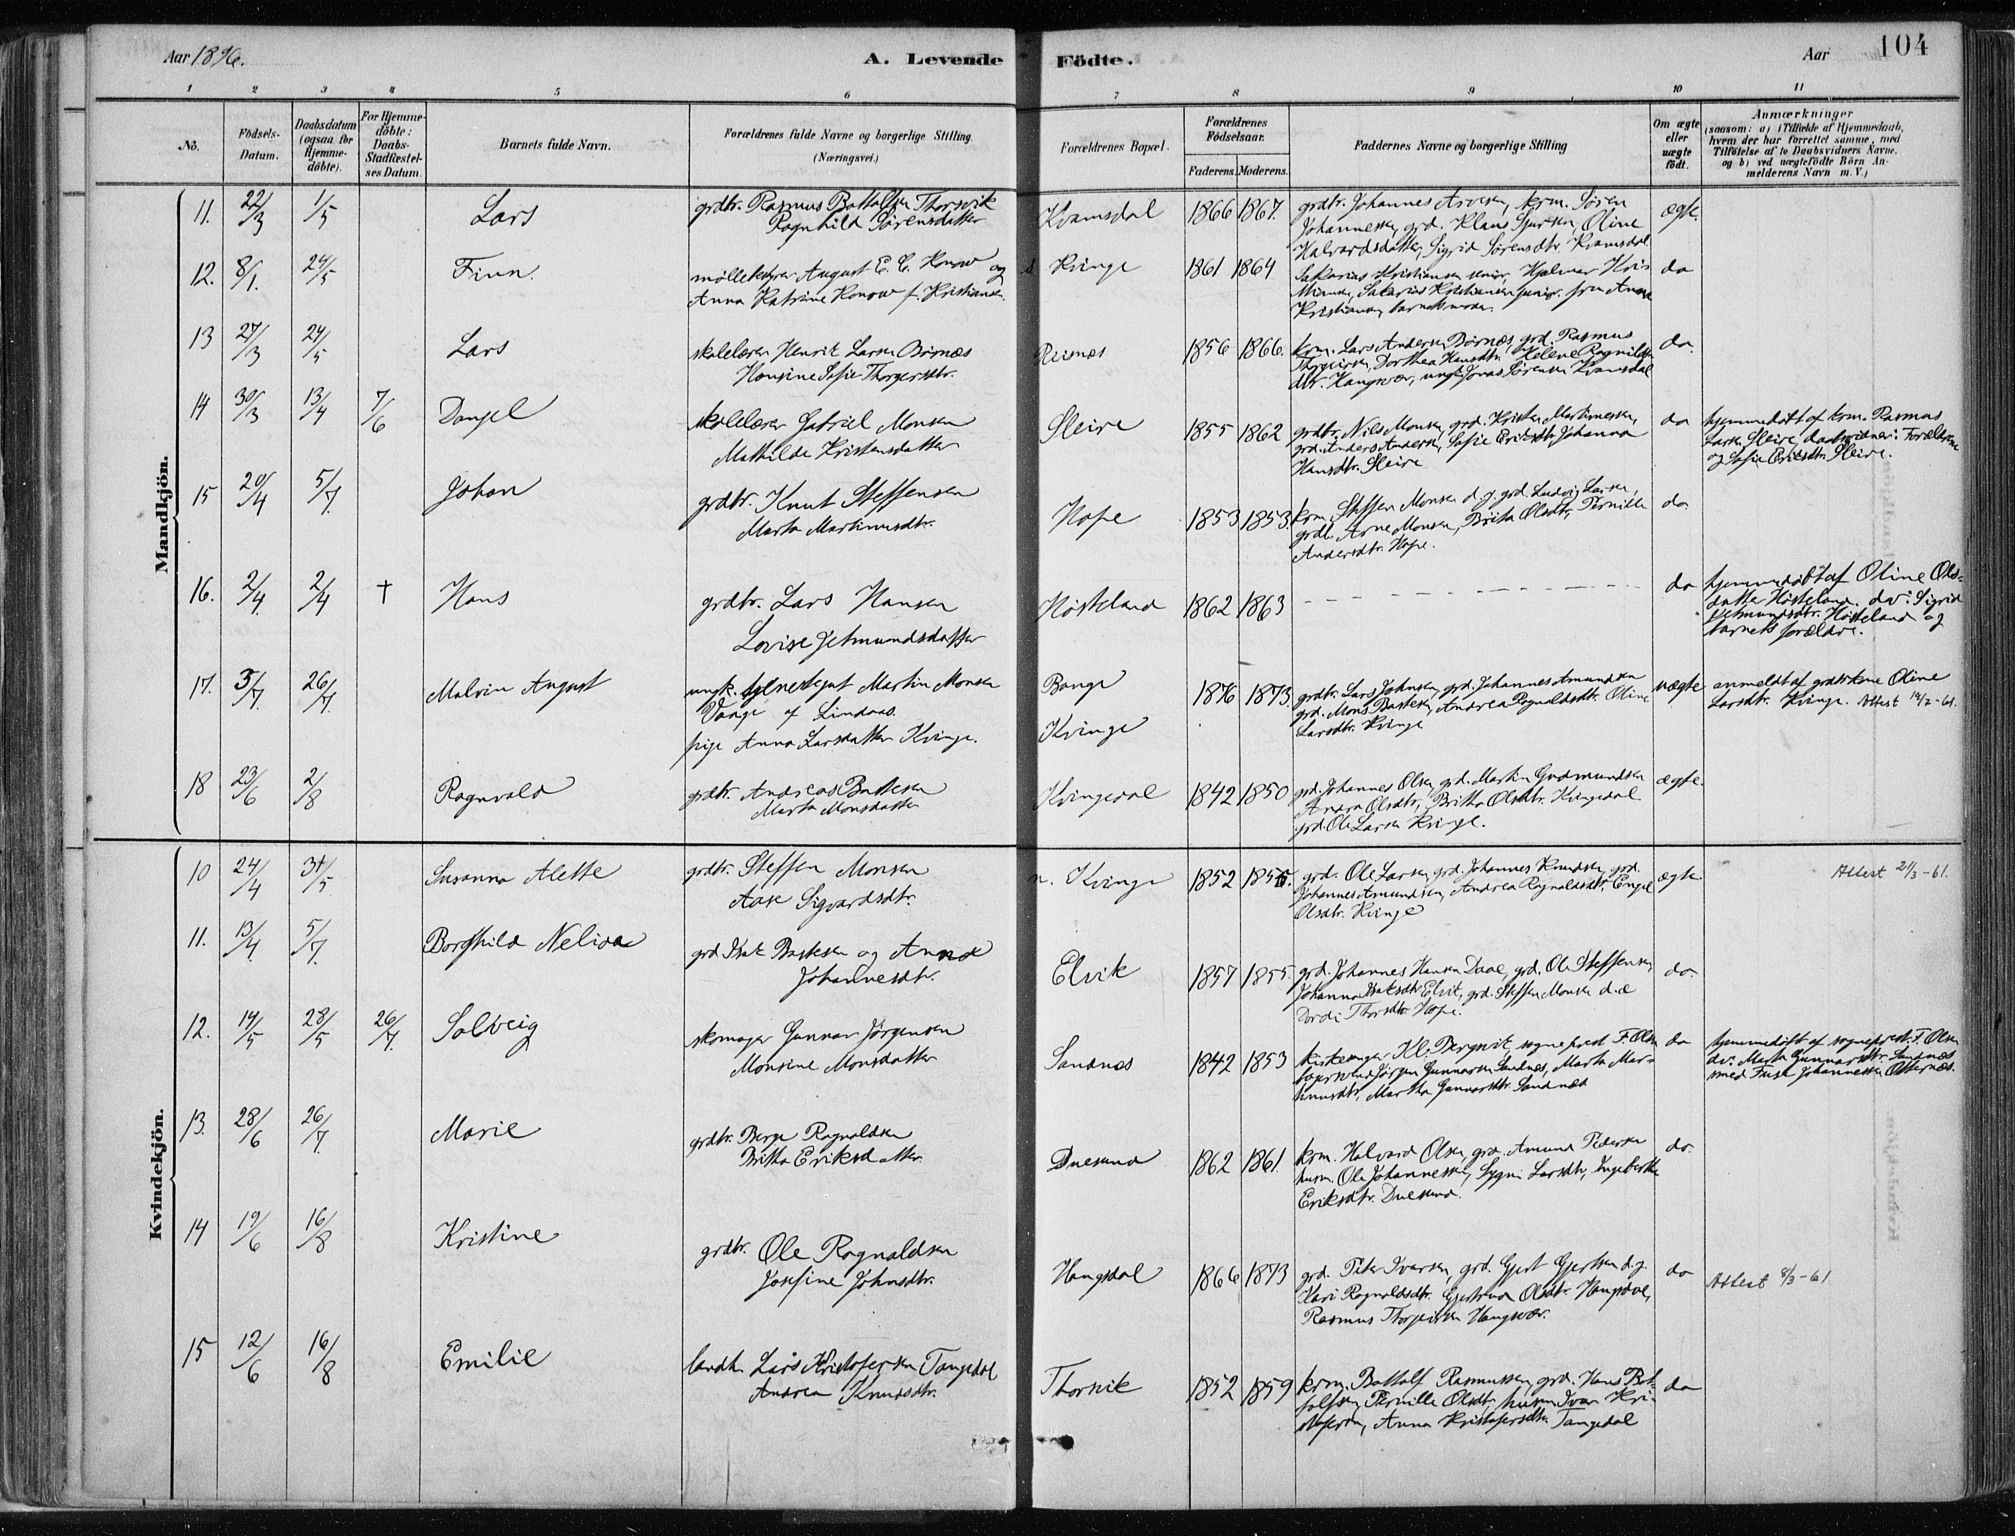 Aar 1896.
A. Levende
Födte.
Aar
104
1 2 3 4 5 6 7 8 9 10 11
No.
Födsels-Datum.
Daabsdatum (ogsaa for Hjemmedöbte).
For Hjemmedöbte: Daabs-Stadfæstelses Datum.
Barnets fulde Navn.
Forældrenes fulde Navne og borgerlige Stilling
(Næringsvei.)
Forældrenes Bopæl.
Forældrenes Födselsaar.
Faderens. Moderens.
Faddernes Navne og borgerlige Stilling
Om ægte eller uægte födt.
Anmærkninger
(saasom: a) i Tilfælde af Hjemmedaab,
hvem der har forrettet samme, med
Tilföielse af to Daabsvidners Navne,
og b) ved uægtefödte Börn Anmelderens Navn m. V.)
Mandkjön.
11. 22/3 1/5 Lars
grdbr. Rasmus Bottolfsen Thorsvik
Ragnhild Sørensdatter
Kvamsdal 1866 1867.
grdbr. Johannes Arvesen, krm. Søren
Johannessen, grd. Klaus Sjursen, Oline
Halvardsdatter, Sigrid Sørensdtr. Kvamsdal
ægte.
12. 8/1. 24/5 Finn.
møllebestyrer August E. C. Konow og
Anna Katrine Konow f. Kristiansen.
Kvinge 1861 1864
Sakarias Kristiansen senior, Hjalmar
Sakarias Kristiansen junior. fru Anna
Kristiansen, barnets moder.
do
13 27/3 24/5 Lars
skolelærer Henrik Larsen Børnæs
Hansine Sofie Thorgersdtr.
Reisnæs 1856 1866.
krm. Lars Andersen Børnæs, grd. Rasmus
Thorgersen, Dorthea Hansdtr. Helene Ragnilds-
dtr. Haugsvær, ungk Jonas Sørensen Kvamsdal
do.
14 30/3 13/4 7/6 Daniel
skolelærer Gabriel Monsen
Mathilde Kristensdatter
Sleire 1855 1862
grdbr. Nils Monsen, grd. Kristen Martinussen,
grd. Anders Andersen, Sofie Eriksdtr, Johanna
Hansdtr. Sleire
do
hjemmedøbt af krm. Rasmus
Larsen Sleire, daabsvidner: Forældrene
og Sofie Eriksdtr. Sleire.
15 20/4 5/7. Johan
grdbr. Knut Steffensen
Marta Martinusdtr.
Hope 1853 1853.
krm. Steffen Monsen d. y. grd. Ludvig Larsen,
grdb. Arne Monsen, Brita Olsdtr, Pernille
Andersdtr. Hope.
do.
16. 2/4 2/4 † Hans
grdbr. Lars Hansen
Lovise Jetmundsdatter
Høsteland 1862 1863
do
hjemmedøbt af Oline Ols-
datter Høsteland. dv: Sigrid
Jetmundsdtr. Høsteland og
barnets forældre.
17. 3/7 26/7. Malvin August
ungk. tjenestegut Martin Monsen
Vange af Lindaas.
pige Anna Larsdatter Kvinge.
Vange
Kvinge
1876 1873.
grdbr. Lars Johnsen, grd. Johannes Amundsen
grd. Mons Bastesen, Andrea Ragnaldsdtr. Oline
Larsdtr. Kvinge
uægte
anmeldt af grdbrkone Oline
Larsdtr. Kvinge. Attest 14/2-61.
18 23/6 2/8 Ragnvald
grdbr. Andreas Bastesen
Marta Monsdatter
Kvingedal 1842 1850
grd. Johannes Olsen, grd. Martin Gudmundsen
Anna Olsdtr, Britha Olsdtr. Kvingedal
grd. Ole Larsen Kvinge.
ægte.
Kvindekjön.
10 24/4 31/5 Susanna Alette
grdbr. Steffen Monsen
Aase Sigvardsdtr.
n. Kvinge 1852 1855.
grd. Ole Larsen, grd. Johannes Knudsen, grd.
Johannes Amundsen, Andrea Ragnaldsdtr, Engel
Olsdtr. Kvinge
ægte.
Attest 21/3-61.
11. 13/4 5/7. Borghild Nelida
grd Isak Bastesen og Anna
Johannesdtr.
Elvik 1857 1855.
grd. Johannes Hansen Daae, grd. Ole Steffensen,
Johanna Isaksdtr Elvik, grd. Steffen Monsen d. æ
Dordi Thorsdtr. Hope.
do.
12. 14/5 28/5 26/7. Solveig
skomager Gunnar Jørgensen
Monsine Monsdatter
Sandnæs 1842 1853
kirkesanger Kl. Bergsvik sogneprest F. Olsen
Jørgen Gunnarsen Sandnæs, Marta Mar-
tinusdtr, Martha Gunnarsdtr. Sandnæs
do
hjemmedøbt af sogneprest F. Olsen
dv: Marta Gunnarsdtr. Sandnæs
Johannessen
13. 28/6 26/7 Marie
grdbr. Berge Ragnaldsen
Britha Eriksdatter
Duesund 1862 1861.
krm. Halvard Olsen, grd. Amund Pedersen
husm. Ole Johannessen, Sygni Larsdtr, Ingeborg
Eriksdtr. Duesund.
do.
14 19/6 16/8 Kristine
grdbr. Ole Ragnaldsen
Josefine Johnsdtr.
Haugsdal 1866 1873
grd. Peter Ivarsen, grd. Gjert Gjertsen d. y.
Kari Ragnaldsdtr. Gjertrud Olsdtr. Haugsdal,
Rasmus Thorgersen Haugsvær.
do
Attest 8/3-61
15 12/6 16/8 Emilie
landh. Lars Kristofersen Tangedal
Andrea Knudsdtr.
Thorsvik 1852 1859
krm. Bottolf Rasmussen, grd. Hans Bot-
tolfsen, Pernille Olsdtr, husm Ivar Kri-
stofersen, Anna Kristofersdtr Tangedal
do